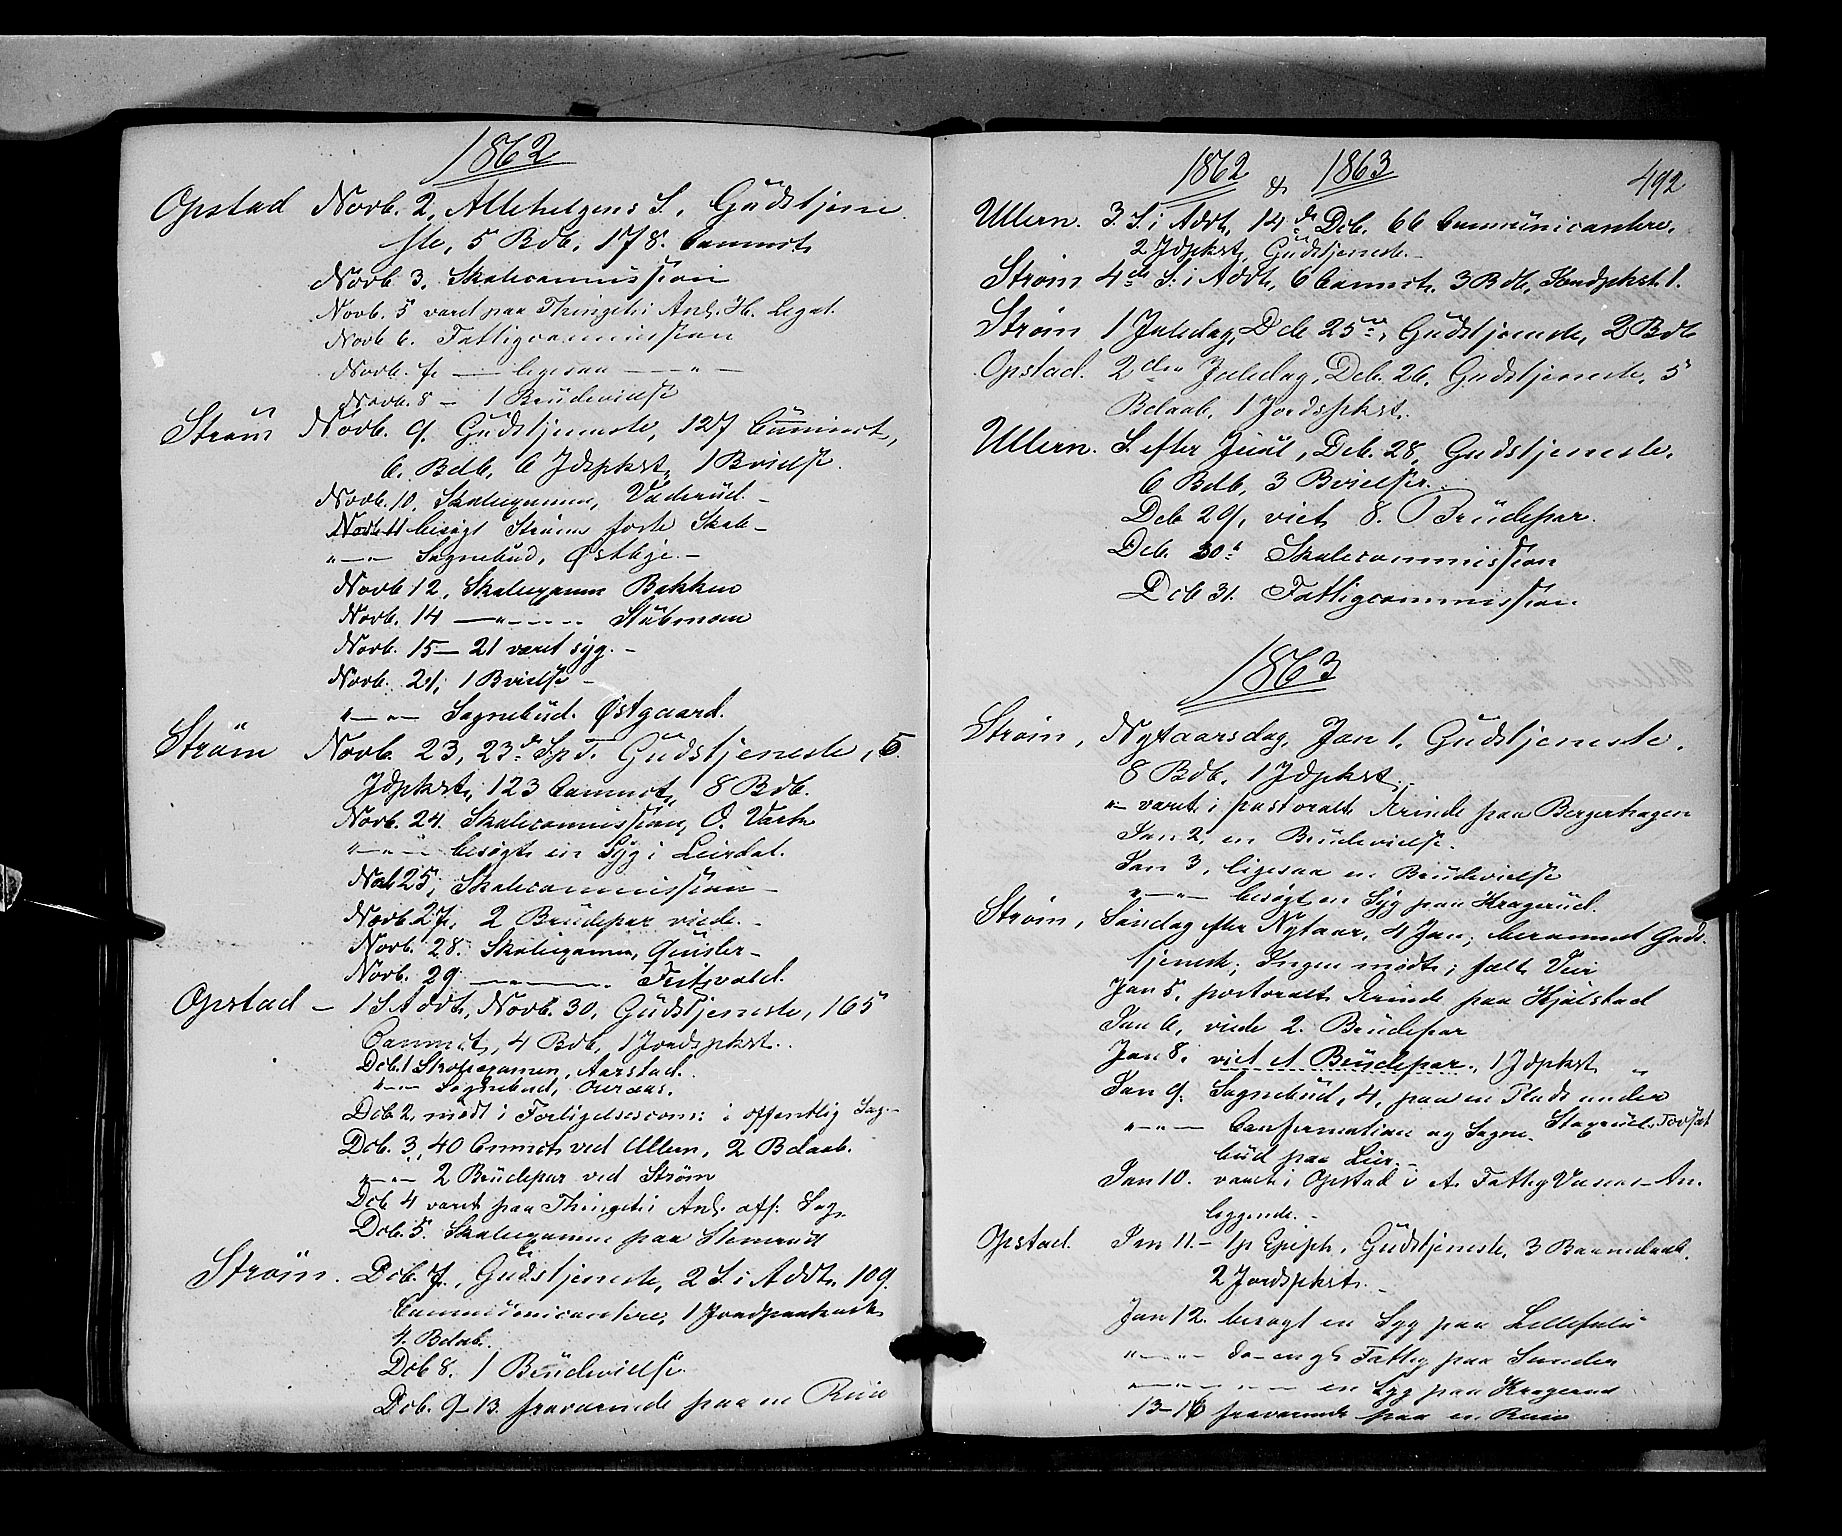 1862
Opstad Novb. 2, Allehelgens S., Gudstjene
ste, 5 Bdb, 178. Commct,
Novb. 3. Skolecommission
Novb. 5 varet paa Thinget i Anl. H. Legat.
Novb 6. Fattigcommission
Novb. 7. — ligesaa — „ —
Novb. 8 — 1 Brudevielse
Strøm Novb. 9. Gudstjeneste, 127 Commct,
6. Bdb, 6 Jdspkst, 1 Bvielse.
Novb. 10, Skoleexamen, Vaderud. —
Novb 11 besøgt Strøms faste Skole —
„ — „ — Sognebud, Østbye. —
Novb 12, Skoleexamen Bakken
Novb. 14 — „ — Stubmoen
Novb. 15 — 21 varet syg. —
Novb. 21, 1 Bvielse —
„ — „ — Sognebud. Østgaard.
Strøm Novb. 23, 23de S. p T. Gudstjeneste, 5.
Jdpkst, 123 Commct, 8 Bdb.
Novb. 24. Skolecommission, O. Vark
„ — „ — besøgt en Syg i Leirdal.
Nob 25, Skolecommission —
Novb. 27, 2 Brudepar viede. —
Novb. 28. Skoleexamen, —
Novb. 29 — „ —
Opstad — 1 S Advt, Novb. 30, Gudstjeneste, 165
Commct, 4 Bdb, 1 Jordspkst.
Dcb. 1 Skoleexamen, Aarstad.
„ — „ — Sognebud, Overaas.
Dcb 2, mødt i Forligelsescom: i offentlig Sag. —
Dcb. 3, 40 Commct ved Ullern, 2 Bdaab.
„ — „ — 2 Brudepar ved Strøm
Dcb 4 varet paa Thinget i Anl. off: Sag.
Dcb. 5. Skoleexamen paa
Strøm. Dcb. 7., Gudstjeneste, 2 S. i Advt, 109.
Communicantere, 1 Jordpaakast
4. Bdaab.
Dcb 8. 1 Brudevielse
Dcb. 9 — 13. fraværende paa en Reise
1862 & 1863
492
Ullern. 3. S. i Advt, 14de Dcb. 66 Communicantere,
2 Jdpkst, Gudstjeneste. —
Strøm 4de S. i Advt, 6 Commct. 3 Bdb, Jordpkst 1.
Strøm 1 Juledag, Dcb 25de, Gudstjeneste, 2 Bdb
Opstad. 2den Juledag, Dcb. 26, Gudstjeneste, 5
Bdaab, 1 Jordspkst.
Ullern. S. efter Juul, Dcb. 28, Gudstjeneste.
6 Bdb, 3 Bvielser.
Dcb 29, viet 8. Brudepar.
Dcb. 30. Skolecommission
Dcb 31. Fattigcommission
1863
Strøm, Nytaarsdag, Jan 1. Gudstjeneste.
8 Bdb, 1 Jdpkst
„ — varet i pastoralt Ærinde paa Bergerhagen
Jan 2, en Brudevielse.
Jan 3, ligesaa en Brudevielse
„ — „ — besøgt en Syg paa Kragerud.
Strøm, Søndag efter Nytaar, 4 Jan, berammet Guds-
tjeneste; Ingen mødte; fælt Veir
Jan 5, pastoralt Ærinde paa Hjølstad
Jan 6, viede 2. Brudepar
Jan 8. viet et Brudepar. 1 Jdpkst „
Jan 9. Sognebud, 4, paa en Plads under
„ — „ — Confirmation og Sogne-
bud paa Lier. —
Jan 10. varet i Opstad i A. Fattig Væsens An-
liggende. —
Opstad. Jan 11. — 1 p Epiph, Gudstjeneste, 3 Barnedaab.
2 Jordspkst. —
Jan 12. besøgt en Syg paa
„ — „ — Fattig paa Sander
„ — „ — „ — en Syg paa Kragerud
13 – 16 fraværende paa en Reise